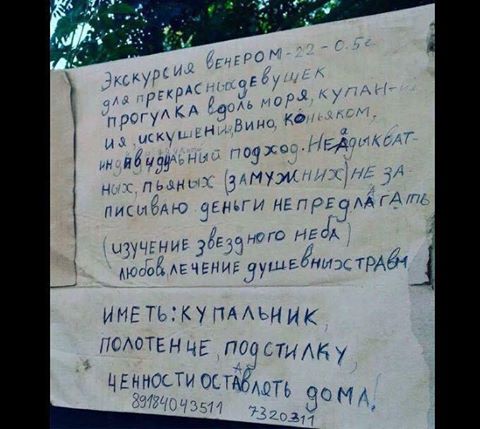 Экскурсия вечером-22-0.5г
для прекрасных девушек
прогулка вдоль моря, купан-
ия, искушения, вино, коньяком,
индивидуальный подход. Неадыкват-
ных, пьяных (замужних) не за-
писываю деньги не предлагать
(изучение звездного неба)
любовь лечение душевных травм
иметь: купальник,
полотенце, подстилку,
ценности оставлять дома!
89184043511 7320311